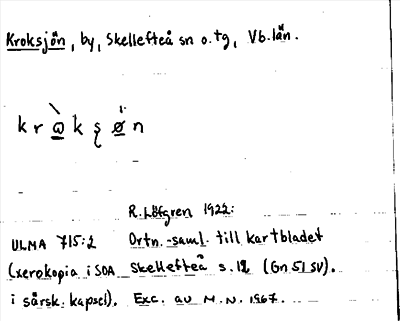 Kroksjön, by, Skellefteå sn o. tg, Vb. län.
k r å̀ k ʂ ø n
R. Löfgren 1922:
ULMA 715:2 Ortn.-saml. till kartbladet
(xerokopia i SOA Skellefteå s. 12 (Gn 51 SV).
i särsk. kapsel). Exc. av M. N. 1967.